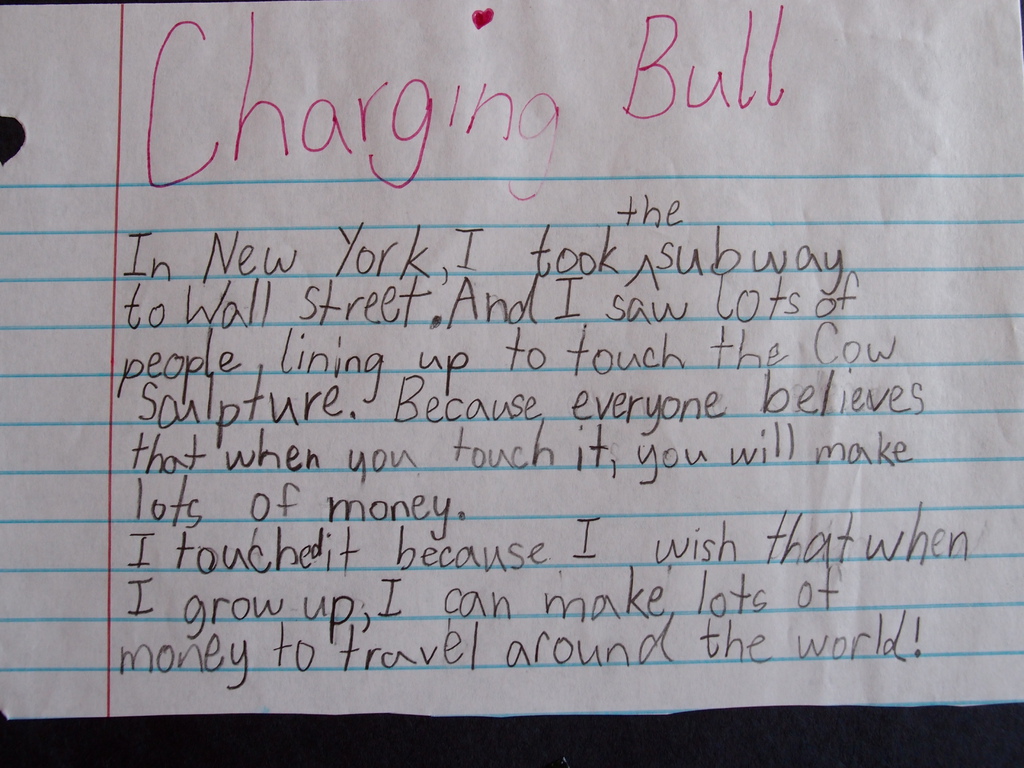 Charging Bull
In New York, I took the subway
to Wall Street. And I saw lots of
people, lining up to touch the Cow
Sculpture. Because everyone believes
that when you touch it, you will make
lots of money.
I touched it because I wish that when
I grow up, I can make lots of
money to travel around the world!